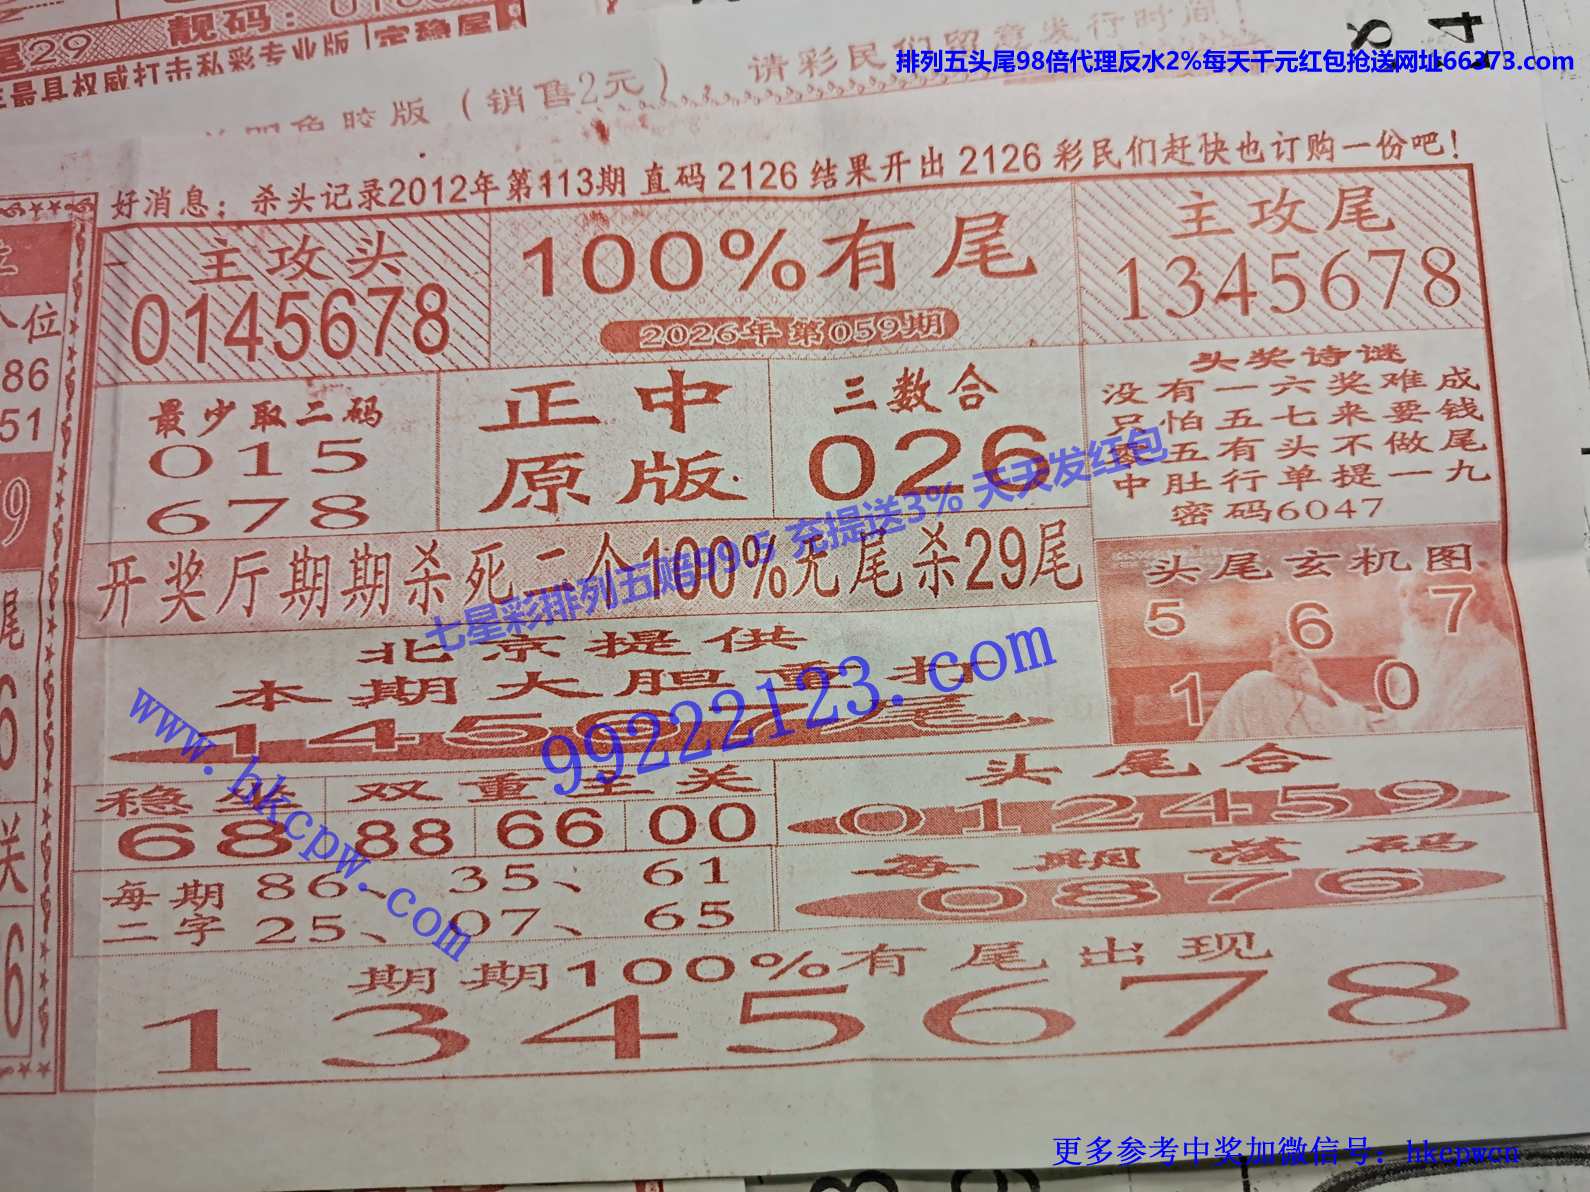 尾29 靓码：0186
年最具权威打击私彩专业版 定稳尾
胶版（销售2元） 请彩民们留意发行时间！
排列五头尾98倍代理反水2%每天千元红包抢送网址66373.com
8 4
好消息：杀头记录2012年第113期 直码 2126 结果开出 2126 彩民们赶快也订购一份吧！
主攻头
0145678
100%有尾
2026年第059期
主攻尾
1345678
位
86
51
9
尾
6
送
6
最少取二码
015
678
正中
原版
三数合
026
头奖诗谜
没有一六奖难成
只怕五七来要钱
五有头不做尾
中肚行单提一九
密码6047
七星彩排列五赔99.5 充提送3% 天天发红包
开奖厅期期杀死二个100%无尾杀29尾
头尾玄机图
5 6 7
1 0
北京提供
本期大胆重打
尾
99222123.com
www.hkcpw.com
稳坐
68
双重主关
88 66 00
头尾合
012459
每期
二字
86 35、 61
25、 07、 65
每期落码
0876
期期100%有尾出现
1345678
更多参考中奖加微信号：hkcpwcn